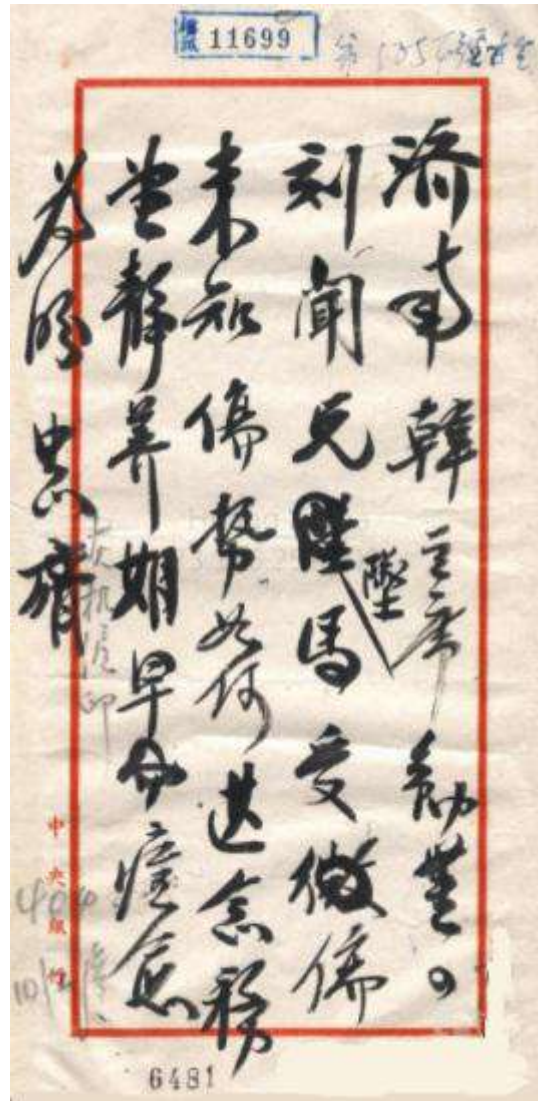 11699
濟南韓主席勛鑒。
刻聞兄墜馬受微傷
未知傷勢如何甚念務
望靜養期早痊愈
為盼
中央
6481